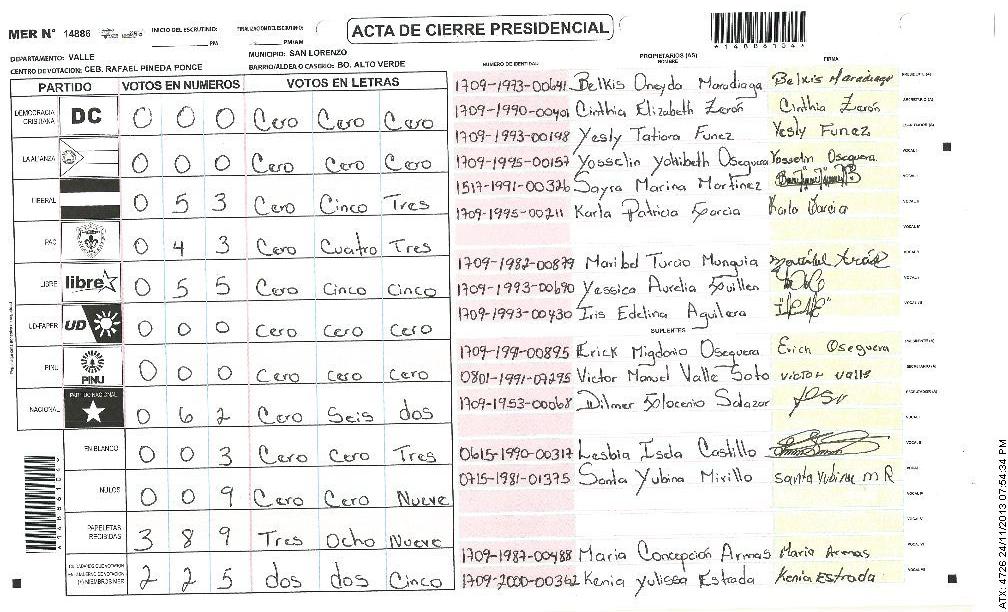 ACTA DE CIERRE PRESIDENCIAL
MER N° 14886
INICIO DEL ESCRUTINIO: PM
FINALIZACION DEL ESCRUTINIO: PM/AM
DEPARTAMENTO: VALLE
MUNICIPIO: SAN LORENZO
CENTRO DE VOTACION: CEB. RAFAEL PINEDA PONCE
BARRIO/ALDEA O CASERIO: BO. ALTO VERDE
PARTIDO VOTOS EN NUMEROS VOTOS EN LETRAS
DEMOCRACIA CRISTIANA DC 0 0 0 Cero Cero Cero
LA ALIANZA 0 0 0 Cero Cero Cero
LIBERAL 0 5 3 Cero Cinco Tres
PAC 0 4 3 Cero Cuatro Tres
LIBRE libre 0 5 5 Cero Cinco Cinco
UD-FAPER UD 0 0 0 Cero Cero Cero
PINU PINU 0 0 0 Cero Cero Cero
NACIONAL PARTIDO NACIONAL 0 6 2 Cero Seis dos
EN BLANCO 0 0 3 Cero Cero Tres
NULOS 0 0 9 Cero Cero Nueve
PAPELETAS RECIBIDAS 3 8 9 Tres Ocho Nueve
2 2 5 dos dos Cinco
NUMERO DE IDENTIDAD PROPIETARIOS (AS) NOMBRE FIRMA
1709-1973-00641 Belkis Oneyda Maradiaga Belkis Maradiaga
1709-1990-00401 Cinthia Elizabeth Zerón Cinthia Zerón
1709-1993-00198 Yesly Tatiana Funez Yesly Funez
1709-1995-00157 Yosselin Yohibeth Oseguera Yosselin Oseguera
1517-1991-00326 Sayra Marina Martinez
1709-1995-00211 Karla Patricia Garcia Karla Garcia
1709-1982-00879 Maribel Turcio Munguia
1709-1993-00690 Yessica Aurelia Guillen
1709-1993-00430 Iris Edelina Aguilera
SUPLENTES
1709-1991-00895 Erick Migdonio Oseguera Erick Oseguera
0801-1991-07295 Victor Manuel Valle Soto Victor Valle
1709-1953-00068 Dilmer Glocenio Salazar
0615-1990-00317 Lesbia Isela Castillo
0715-1981-01375 Santa Yubina Mirillo santa Yubina m R
1709-1987-00488 Maria Concepción Armas Maria Armas
1709-2000-00362 Kenia Yulissa Estrada Kenia Estrada
ATX: 4726 24/11/2013 07:54:34 PM